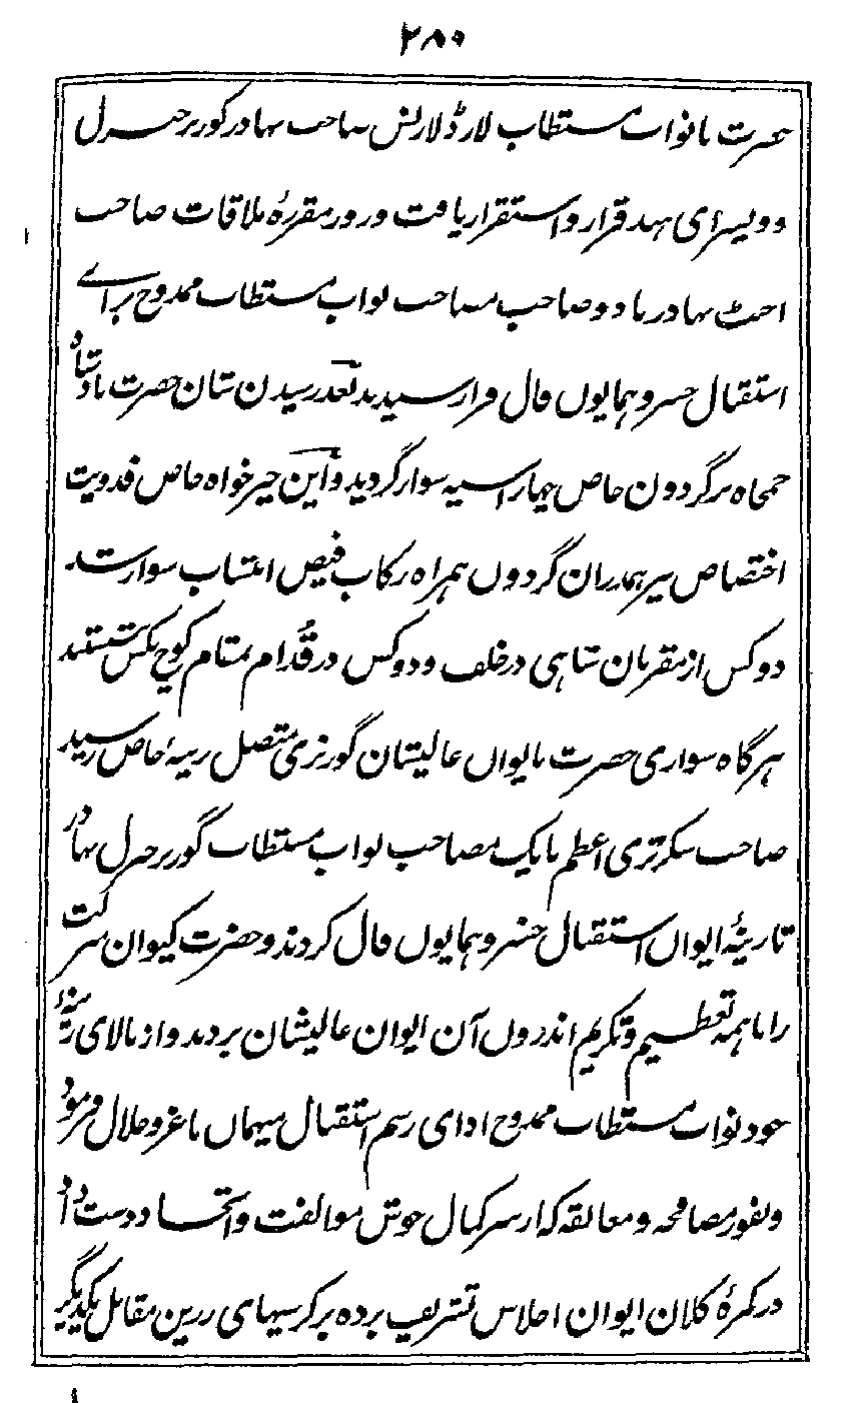 ۲۸۰
حضرت با نواب مستطاب لارڈ لارنس صاحب بهادر گورنر جنرل
و ویسرای هند قرار و استقرار یافت و روز مقررهٔ ملاقات صاحب
اجنٹ بهادر با دو صاحب مصاحب نواب مستطاب ممدوح برائے
استقبال خسرو همایوں فال فراز رسیدند بعد رسیدن شان حضرت بادشاه
جمجاه بر گردون خاص چهار اسپه سوار گردیدند و این خیرخواه خاص فدویت
اختصاص نیز همدران گردوں همراه رکاب فیض انتساب سوار شد
دو کس از مقربان شاهی در خلف و دو کس در قُدام بمقام کوچ بکس نشستند
هرگاه سواری حضرت با یوان عالیشان گورنری متصل زینهٔ خاص رسید
صاحب سکرتری اعظم با یک مصاحب نواب مستطاب گورنر جنرل بهادر
تا زینهٔ ایواں استقبال خسرو همایوں فال کردند و حضرت کیوان منزلت
را با همه تعظیم و تکریم اندروں آن ایوان عالیشان بردند و از بالای زینهٔ
خود نواب مستطاب ممدوح ادای رسم استقبال میهماں با عز و جلال فرمود
و بفور مصافحه و معانقه که از سر کمال جوش موالفت و اتحاد دست داد
در کمرهٔ کلان ایوان اجلاس تشریف برده بر کرسیهای زرین مقابل یکدیگر